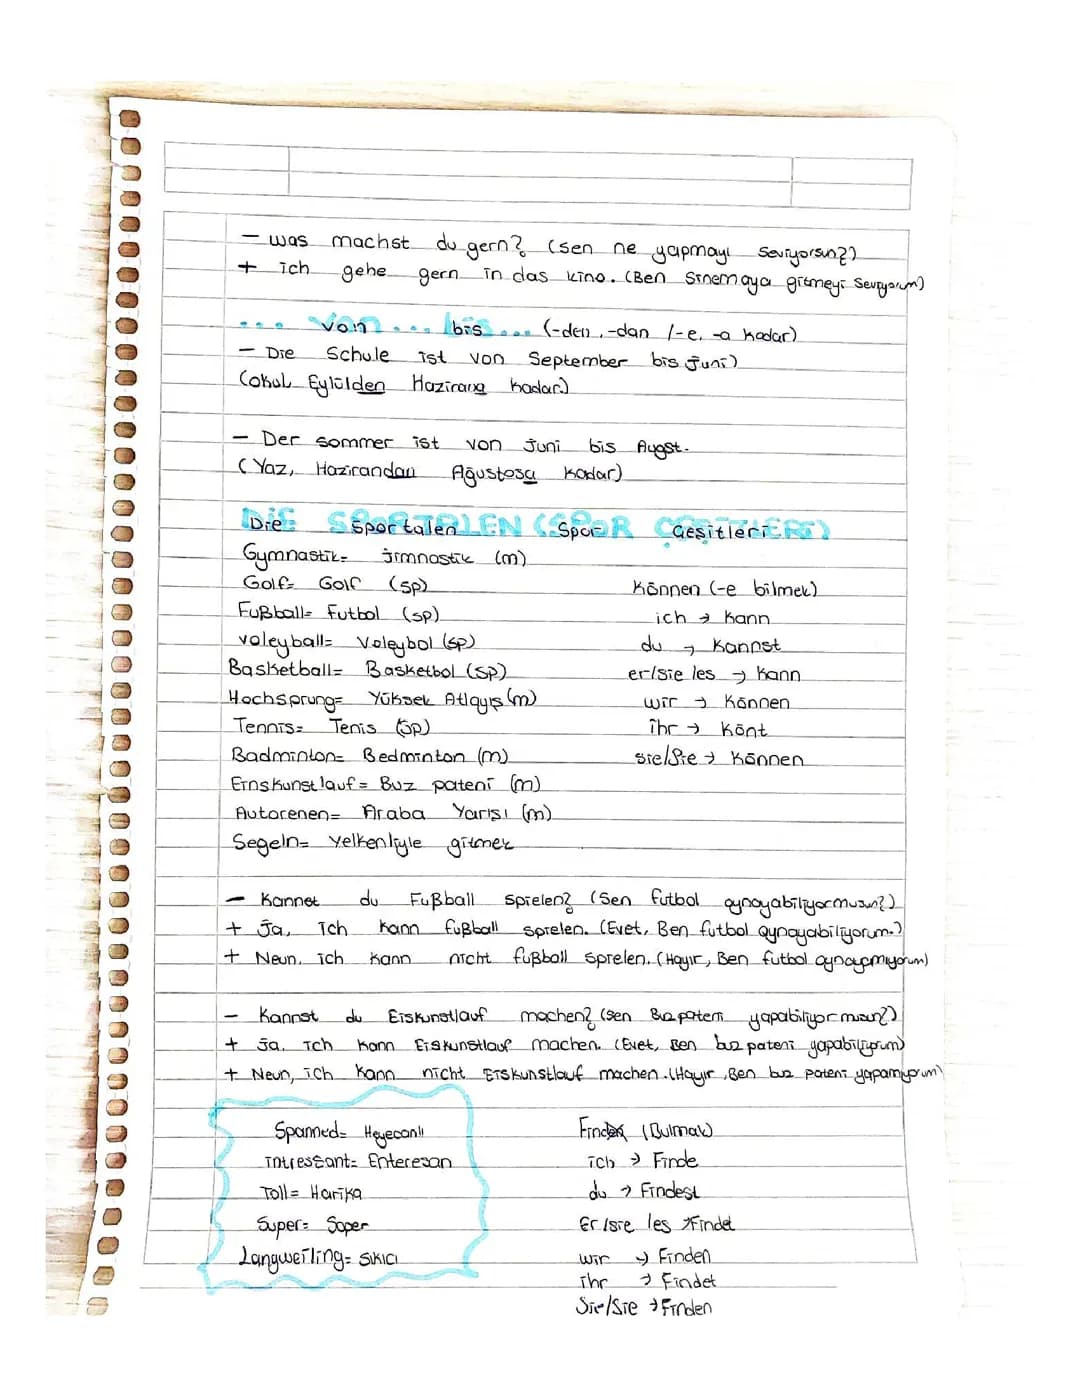 - was machst du gern? (sen ne yapmayı seviyorsun?)
+ ich gehe gern in das kino. (Ben sinemaya gitmeyi seviyorum)
... von ... bis ... (-den, -dan /-e, -a kadar)
- Die Schule ist von September bis Juni)
(okul Eylülden Hazirana kadar)
- Der sommer ist von Juni bis Augst.
(Yaz, Hazirandan Ağustosa kadar)
Die Sportalen (Spor Çeşitleri)
Gymnastik= jimnastik (m)
Golf= Golf (sp)
Fußball= Futbol (sp)
voleyball= Voleybol (sp)
Basketball= Basketbol (sp)
Hochsprung= Yüksek Atlayış (m)
Tennis= Tenis (sp)
Badminton= Bedminton (m)
Einskunstlauf= Buz pateni (m)
Autorenen= Araba Yarışı (m)
Segeln= yelkenliyle gitmek
Können (-e bilmek)
ich → kann
du → kannst
er/sie les → kann
wir → können
ihr → könt
sie/Sie → können
- Kannst du Fußball spielen? (Sen futbol oynayabiliyormusun?)
+ Ja, ich kann fußball spielen. (Evet, Ben futbol oynayabiliyorum.)
+ Neun, ich kann nicht fußball spielen. (Hayır, Ben futbol oynayamıyorum)
- Kannst du Eiskunstlauf machen? (sen Buz pateni yapabiliyor musun?)
+ Ja, ich kann Eiskunstlauf machen. (Evet, Ben buz pateni yapabiliyorum)
+ Neun, ich kann nicht Eiskunstlauf machen. (Hayır, Ben buz pateni yapamıyorum)
Spanned= Heyecanlı
intressant= Enteresan
Toll= Harika
Super= Soper
Langweiling= sıkıcı
Finden (Bulmak)
ich → Finde
du → Findest
Er/sie les → Findet
wir → Finden
ihr → Findet
Sie/Sie → Finden